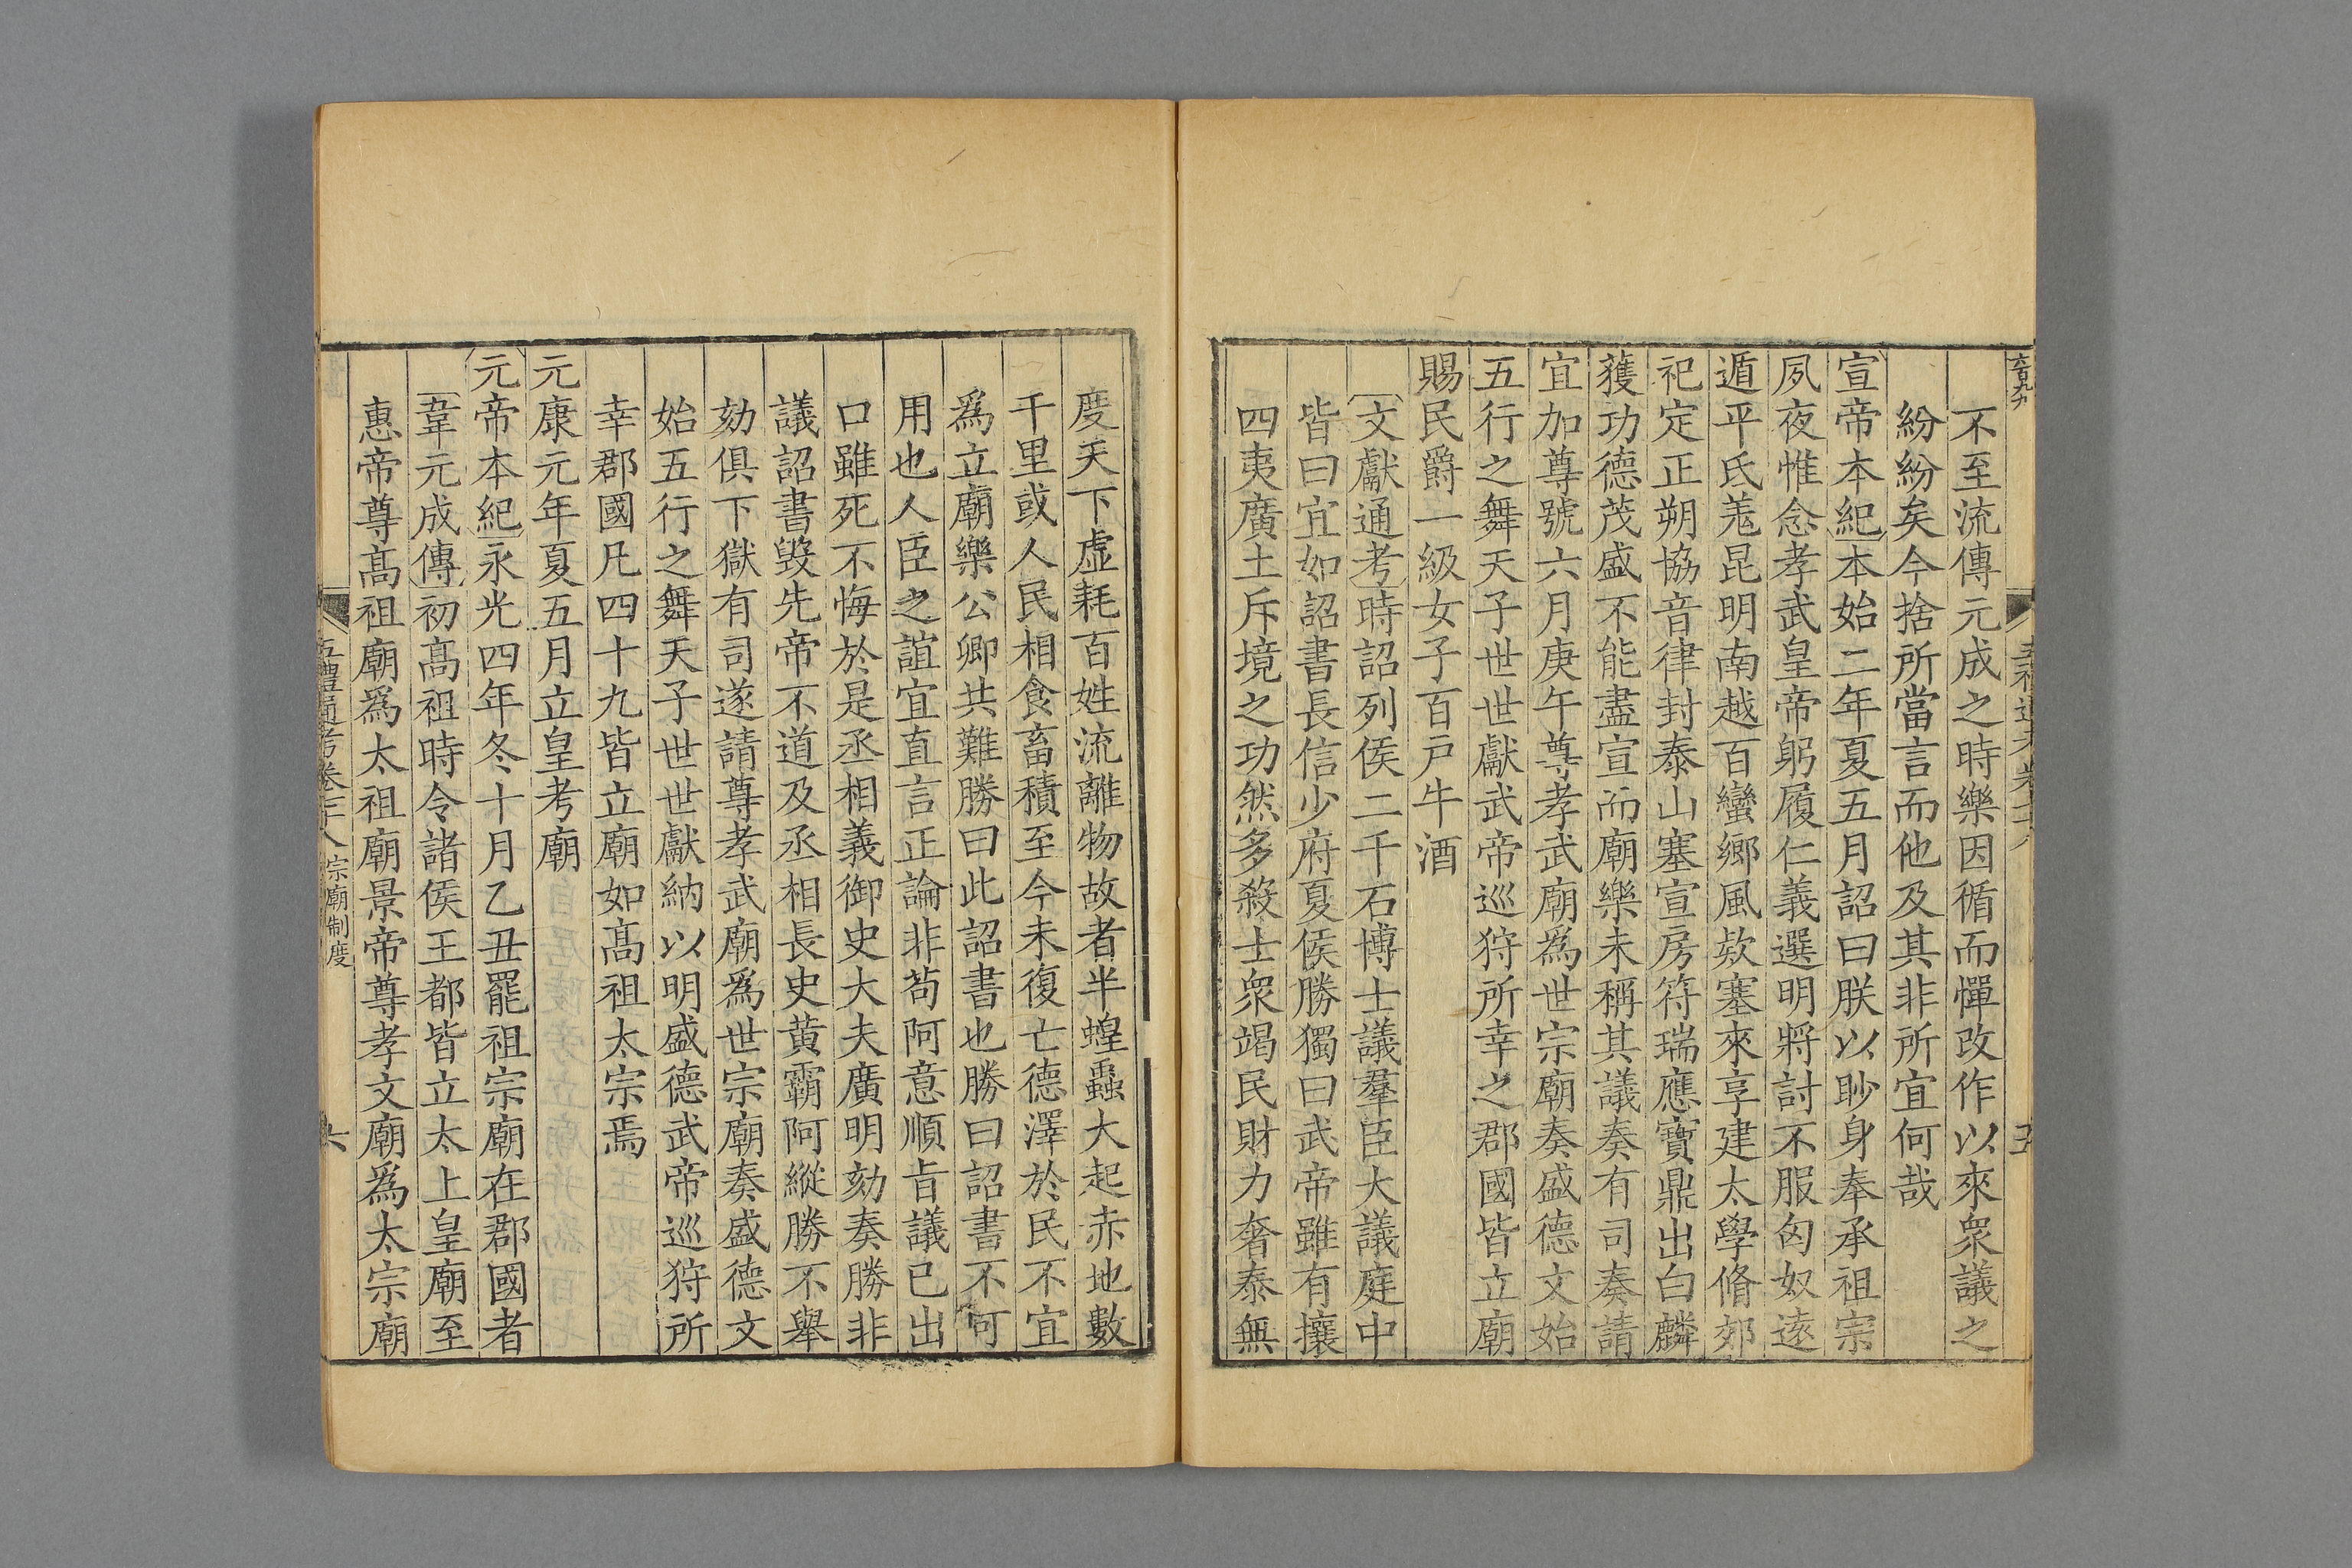 不至流傳元成之時樂因循而憚改作以來衆議之
紛紛矣今捨所當言而他及其非所宜何哉
宣帝本紀本始二年夏五月詔曰朕以眇身奉承祖宗
夙夜惟念孝武皇帝躬履仁義選明將討不服匈奴遠
遁平氐羗昆明南越百蠻鄉風欵塞來享建太學脩郊
祀定正朔協音律封泰山塞宣房符瑞應寶鼎出白麟
獲功德茂盛不能盡宣而廟樂未稱其議奏有司奏請
宜加尊號六月庚午尊孝武廟爲世宗廟奏盛德文始
五行之舞天子世世獻武帝巡狩所幸之郡國皆立廟
賜民爵一級女子百戸牛酒
文獻通考時詔列侯二千石博士議羣臣大議庭中
皆曰宜如詔書長信少府夏侯勝獨曰武帝雖有攘
四夷廣土斥境之功然多殺士衆竭民財力奢泰無
度天下虛耗百姓流離物故者半蝗蟲大起赤地數
千里或人民相食畜積至今未復亡德澤於民不宜
爲立廟樂公卿共難勝曰此詔書也勝曰詔書不可
用也人臣之誼宜直言正論非苟阿意順旨議已出
口雖死不悔於是丞相義御史大夫廣明劾奏勝非
議詔書毀先帝不道及丞相長史黄霸阿縱勝不舉
劾俱下獄有司遂請尊孝武廟爲世宗廟奏盛德文
始五行之舞天子世世獻納以明盛德武帝巡狩所
幸郡國凡四十九皆立廟如髙祖太宗焉
元康元年夏五月立皇考廟
元帝本紀永光四年冬十月乙丑罷祖宗廟在郡國者
韋元成傳初髙祖時令諸侯王都皆立太上皇廟至
惠帝尊髙祖廟爲太祖廟景帝尊孝文廟爲太宗廟
五禮通考卷七十八 宗廟制度 六